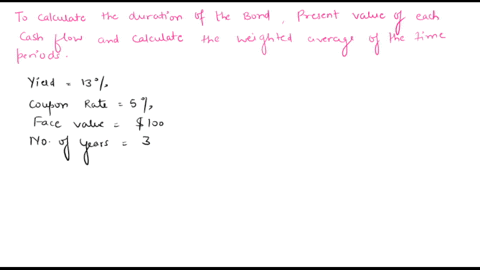 To calculate the duration of the Bond, Present value of each
Cash flow and calculate the weighted average of the time
periods.
Yield = 13%
Coupon Rate = 5%
Face value = $100
No. of years = 3